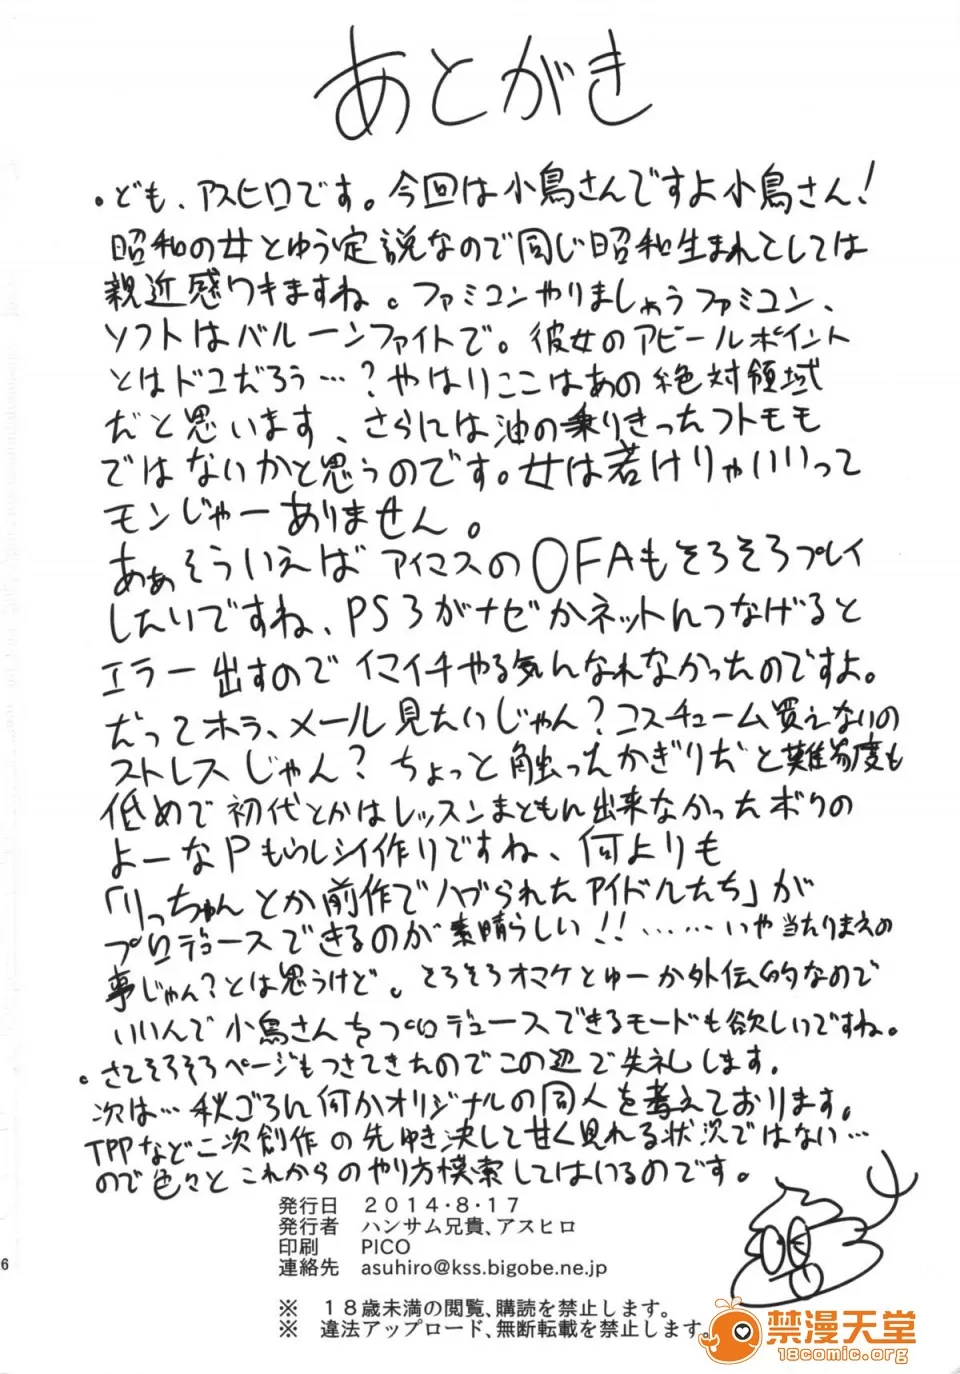 あとがき
・ども、アスヒロです。今回は小鳥さんですよ小鳥さん!
昭和の女とゆう定説なので同じ昭和生まれとしては
親近感ワキますね。ファミコンやりましょうファミコン、
ソフトはバルーンファイトで。彼女のアピールポイント
とはドコだろう…?やはりここはあの絶対領域
だと思います、さらには油の乗りきったフトモモ
ではないかと思うのです。女は若けりゃいいって
モンじゃーありません。
あぁそういえばアイマスのOFAもそろそろプレイ
したいですね、PS3がナゼかネットにつなげると
エラー出すのでイマイチやる気になれなかったのですよ。
だってホラ、メール見たいじゃん?コスチューム買えないの
ストレスじゃん?ちょっと触ったかぎりだと難易度も
低めで初代とかはレッスンまともに出来なかったボクの
よーなPもうれしい作りですね、何よりも
「りっちゃんとか前作でハブられたアイドルたち」が
プロデュースできるのが素晴らしい!!……いや当たりまえの
事じゃん?とは思うけど。そろそろオマケとゆーか外伝的なので
いいんで小鳥さんをプロデュースできるモードも欲しいですね。
。さてそろそろページもつきてきたのでこの辺で失礼します。
次は…秋ごろに何かオリジナルの同人を考えております。
TPPなど二次創作の先ゆき決して甘く見れる状況ではない…
ので色々とこれからのやり方模索してはいるのです。
発行日 2014・8・17
発行者 ハンサム兄貴、アスヒロ
印刷 PICO
連絡先 asuhiro@kss.bigobe.ne.jp
※ 18歳未満の閲覧、購読を禁止します。
※ 違法アップロード、無断転載を禁止します。
6
禁漫天堂
18comic.org